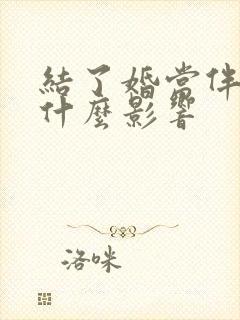 結了婚當伴
什麼影響
洛咪